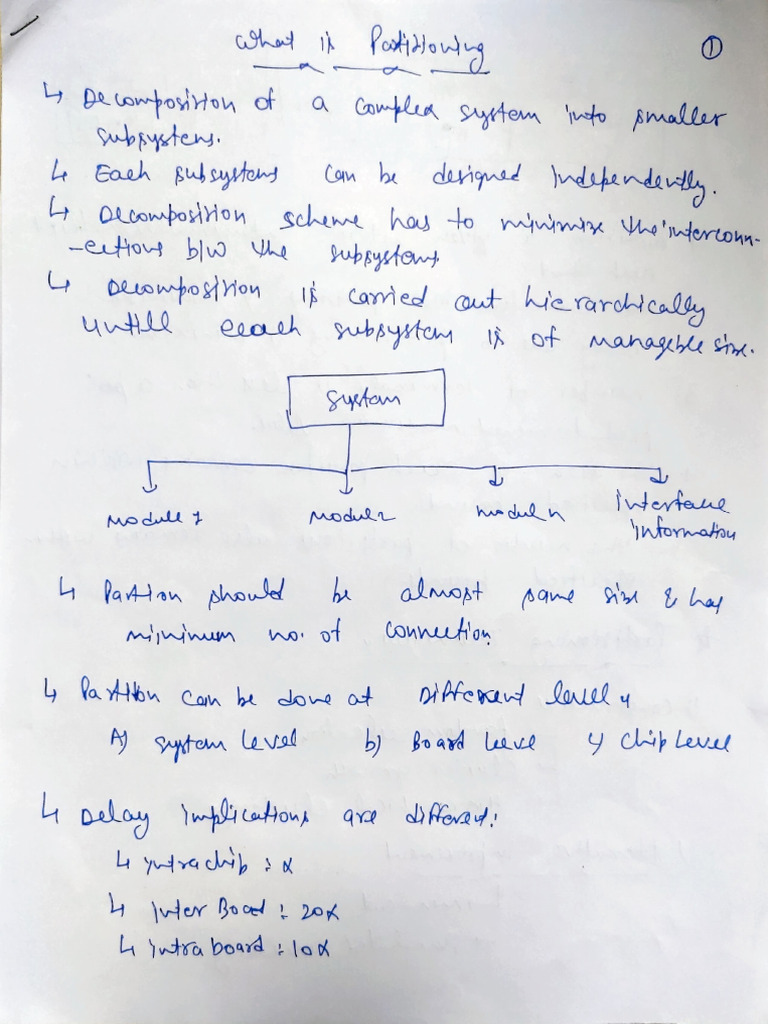 What is Partitioning
①
↳ Decomposition of a complex system into smaller
subsystems.
↳ Each subsystems can be designed independently.
↳ Decomposition scheme has to minimize the interconn-
-ections b/w the subsystems
↳ Decomposition is carried out hierarchically
untill eeach subsystem is of managable size.
System
Module 1 Module 2 Modul n Interface
Information
↳ Partion should be almost same size & has
minimum no. of connection
↳ Partition can be done at Different level
A) System Level b) Board Leeve c) Chip Level
↳ Delay implications are different:
↳ Intrachip : x
↳ Inter Board : 20x
↳ intraboard : 10x